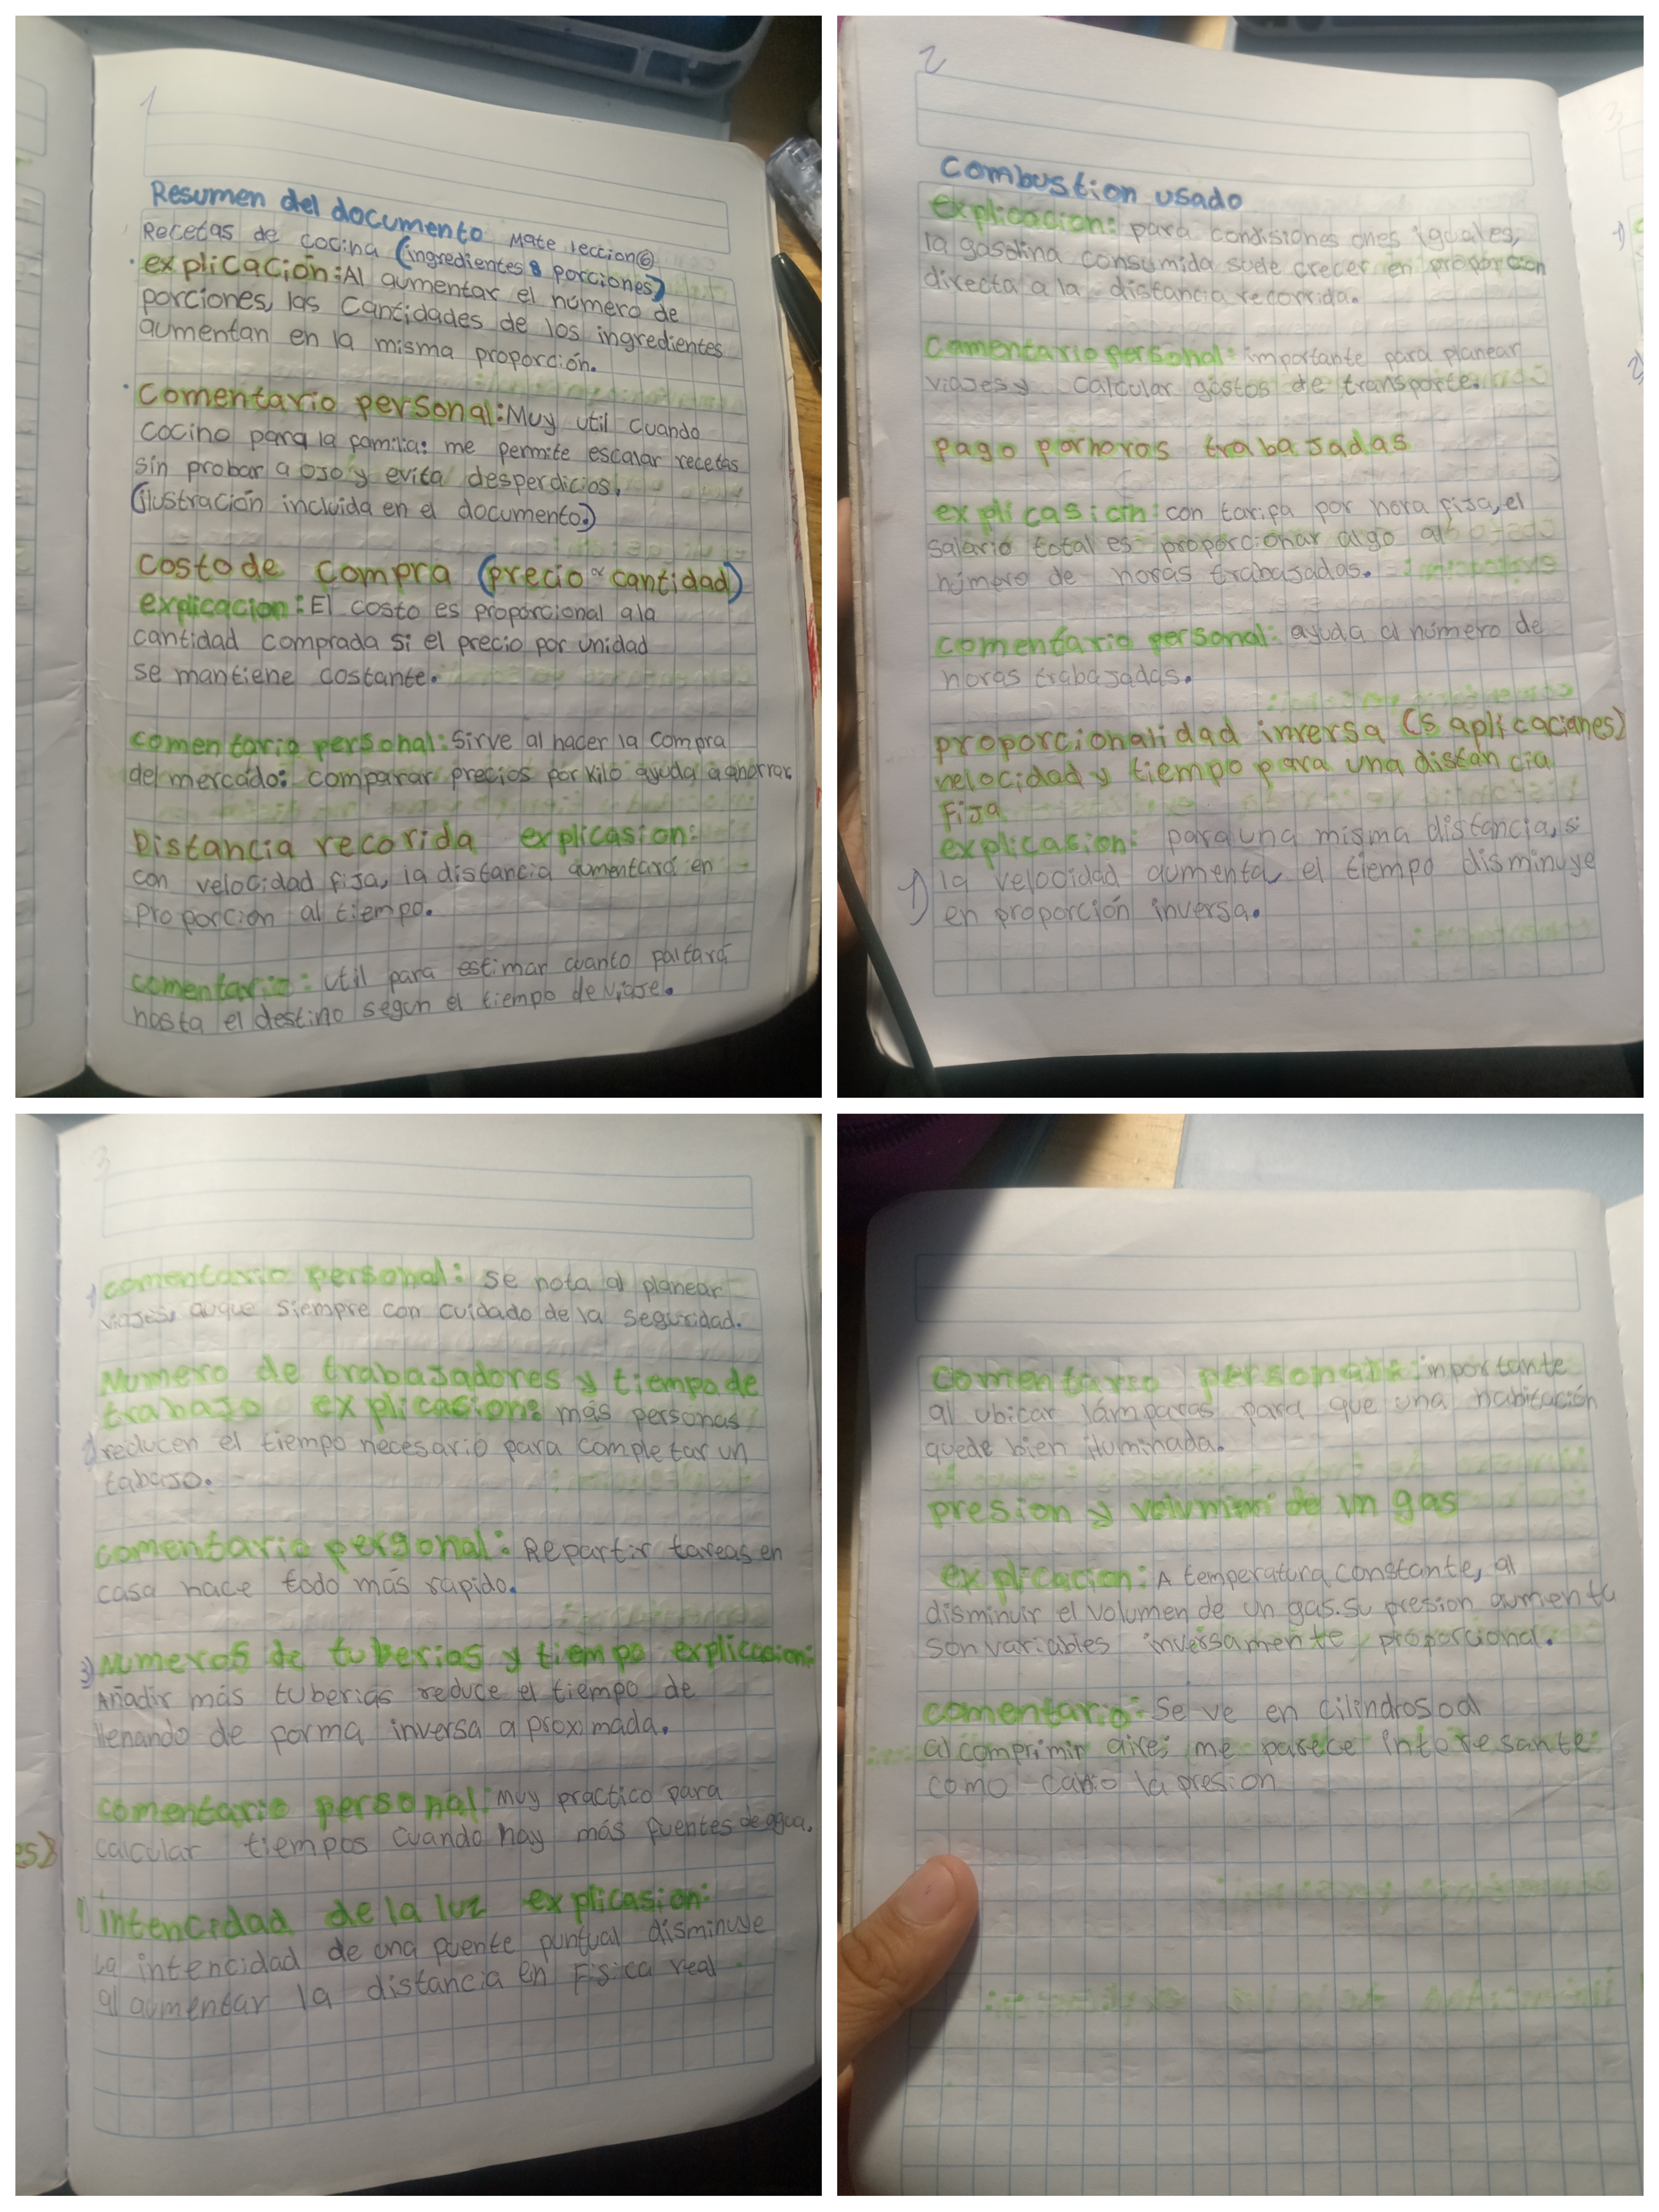 1
Resumen del documento Mate leccion⑥
Recetas de cocina (ingredientes 8 porciones)
explicación: Al aumentar el número de
porciones, las cantidades de los ingredientes
aumentan en la misma proporción.
Comentario personal: Muy util cuando
cocino para la familia: me permite escalar recetas
sin probar a ojo y evita desperdicios.
(ilustración incluida en el documento.)
costo de compra (precio ∝ cantidad)
explicacion: El costo es proporcional a la
cantidad comprada si el precio por unidad
se mantiene costante.
comentario personal: Sirve al hacer la compra
del mercado: comparar precios por kilo ayuda a ahorrar
Distancia recorida explicasion:
con velocidad fija, la distancia aumentará en
proporción al tiempo.
comentario: util para estimar cuanto faltará
hasta el destino segun el tiempo de viaje.
2
Combustion usado
explicacion: para condisiones ones iguales,
la gasolina consumida suele crecer en proporcion
directa a la distancia recorrida.
Comentario personal: importante para planear
viajes y calcular gastos de transporte.
pago por horas trabajadas
explicasicin: con tarifa por hora fija, el
salario total es proporcionar algo al
número de horas trabajadas.
comentario personal: ayuda al número de
horas trabajadas.
proporcionalidad inversa (5 aplicaciones)
velocidad y tiempo para una distancia
Fija
explicasion: para una misma distancia, si
1) la velocidad aumenta, el tiempo disminuye
en proporción inversa.
1)
2)
3
1) comentario personal: se nota al planear
viajes, auque siempre con cuidado de la seguridad.
Numero de trabajadores y tiempo de
trabajo explicasion: más personas
2) reducen el tiempo necesario para completar un
tabajo.
comentario personal: Repartir tareas en
casa hace todo más rapido.
3) Numeros de tuberias y tiempo explicacion:
Añadir más tuberias reduce el tiempo de
llenando de forma inversa aproximada.
comentario personal: muy practico para
calcular tiempos cuando hay más fuentes de agua.
es)
intencidad de la luz explicasion:
La intencidad de una fuente puntual disminuye
al aumentar la distancia en Fisica real
comentario personal: inportante
al ubicar lámparas para que una habitación
quede bien iluminada.
presion y volumen de un gas
explicacion: A temperatura constante, al
disminuir el volumen de un gas. su presion aumenta
son variables inversamente proporcional.
comentario: Se ve en cilindros o al
al comprimir aire: me parece interesante
como canio la presion